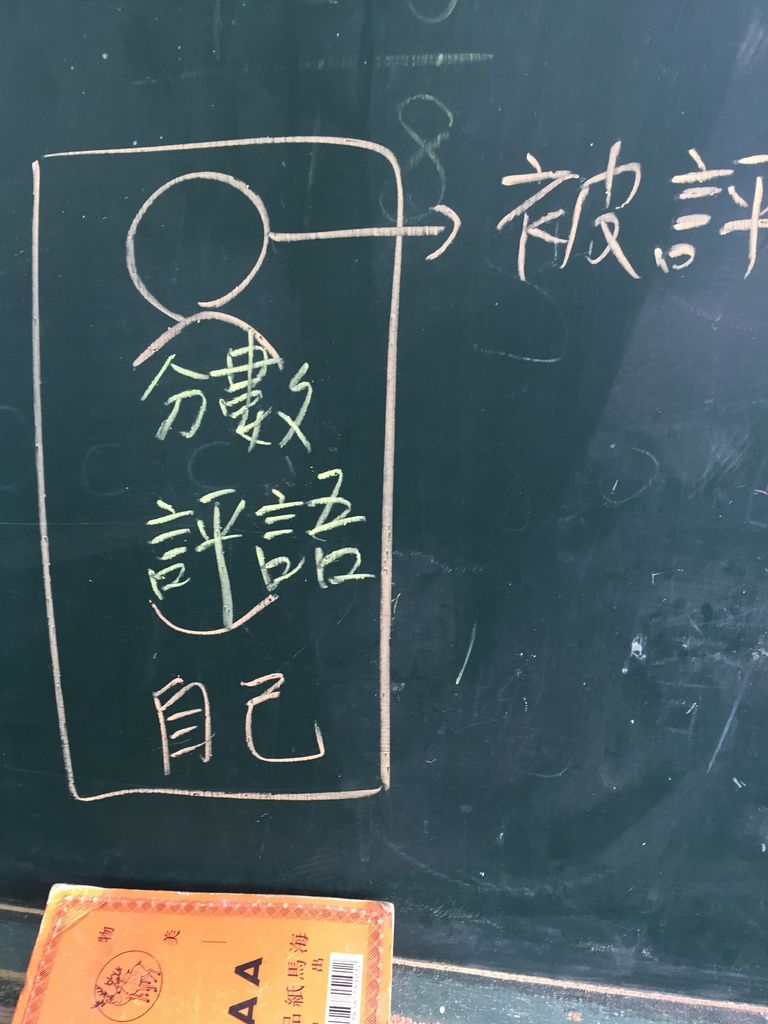 被評
分數
評語
自己
美物
AA
海馬紙品
出